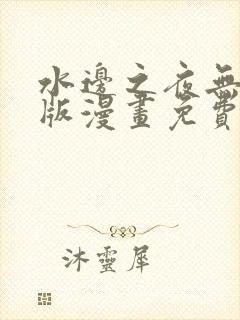 水邊之夜無
版漫畫免費
沐靈犀